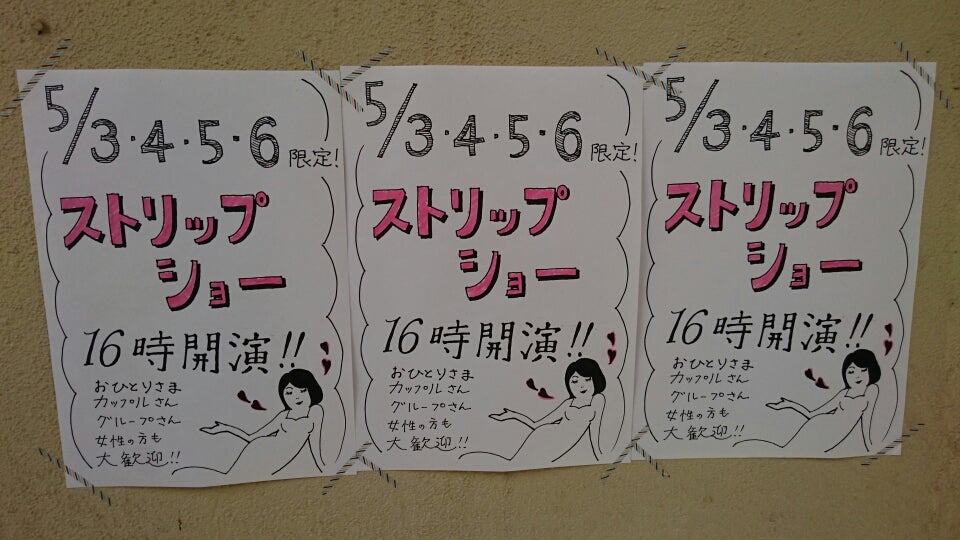 5/3・4・5・6限定!
ストリップ
ショー
16時開演!!
おひとりさま
カップルさん
グループさん
女性の方も
大歓迎!!
5/3・4・5・6限定!
ストリップ
ショー
16時開演!!
おひとりさま
カップルさん
グループさん
女性の方も
大歓迎!!
5/3・4・5・6限定!
ストリップ
ショー
16時開演!!
おひとりさま
カップルさん
グループさん
女性の方も
大歓迎!!